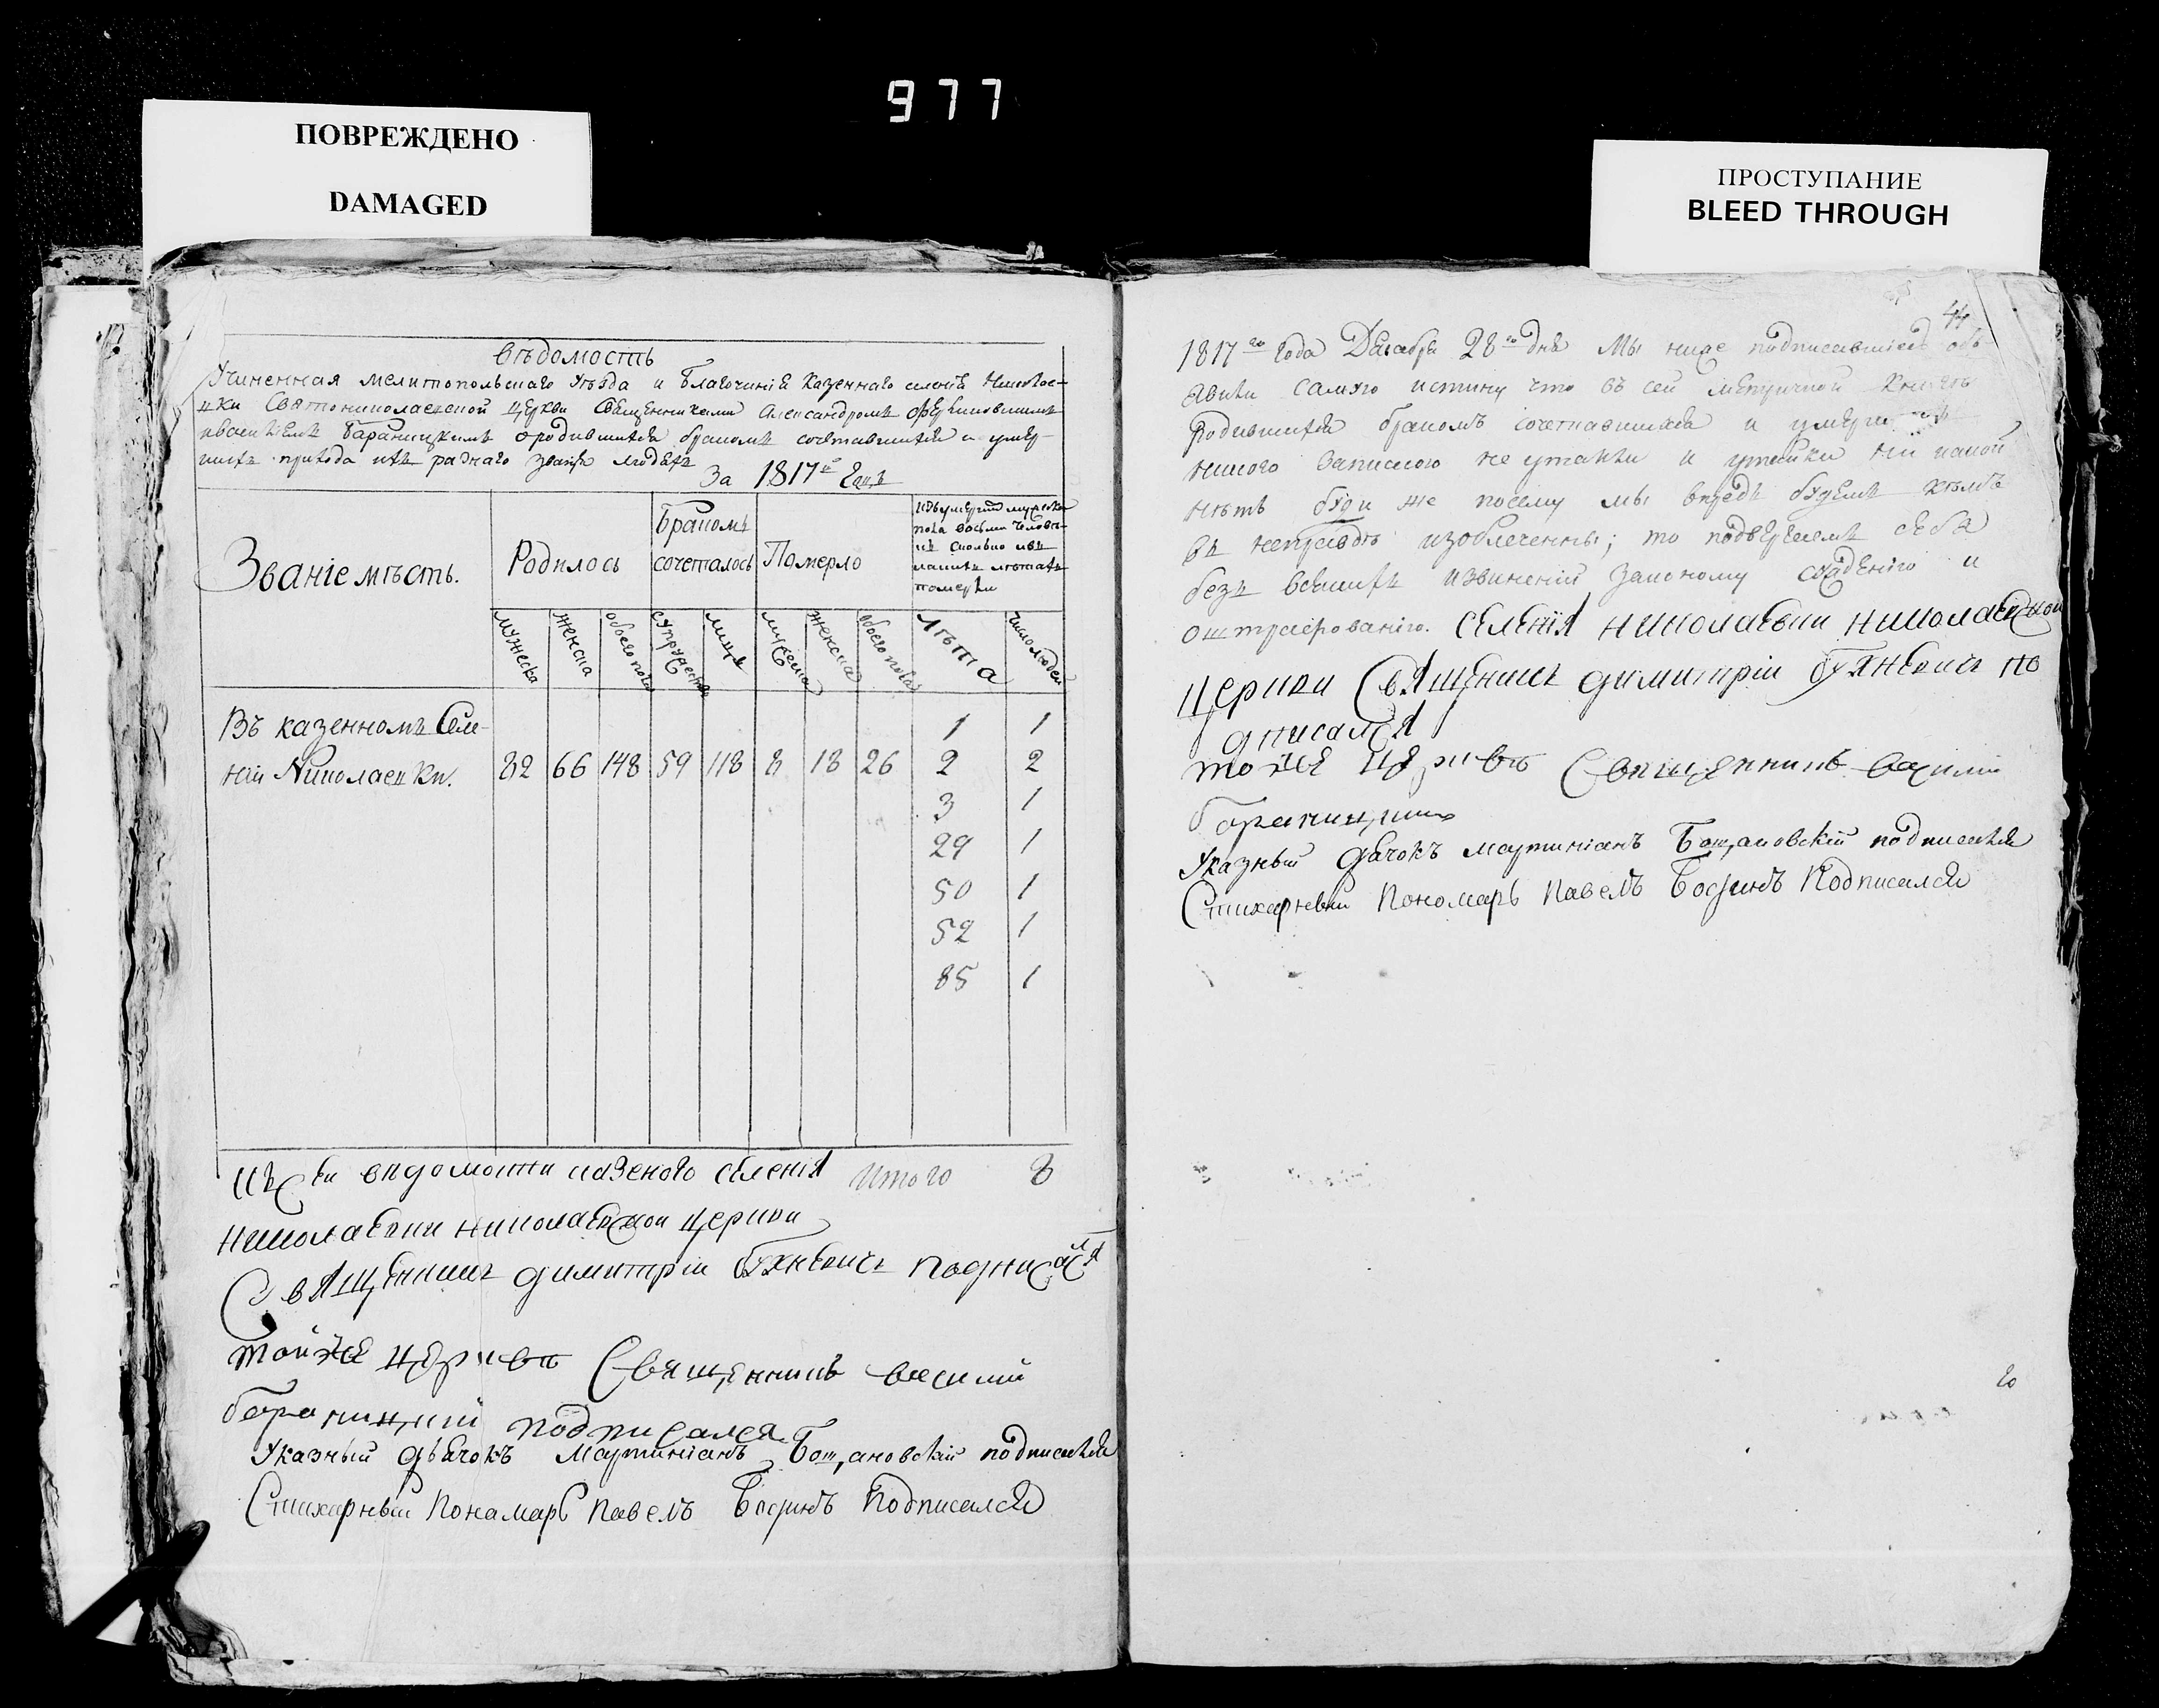 977
ПОВРЕЖДЕНО
DAMAGED
ПРОСТУПАНИЕ
BLEED THROUGH
вѣдомость
Учиненная мелитопольскаго уѣзда и благочинія казеннаго селенія Николае-
вки Святониколаевской церкви Священниками Александромъ
Василіемъ Бараницкимъ о родившихся бракомъ сочетавшихся и умер-
шихъ прихода ихъ разнаго званія людехъ
За 1817й годъ
Званіе мѣстъ.
Родилось
Бракомъ сочеталось
Померло
изъ умершихъ мужеска
пола восьми человѣ-
къ сколько въ
какихъ лѣтахъ
померли
мужеска
женска
обоего пола
супружества
лицъ
мужеска
женска
обоего пола
Лѣта
число людей
Въ казенномъ Селе- 1 1
ніи Николаевки. 82 66 148 59 118 8 18 26 2 2
3 1
29 1
50 1
52 1
85 1
Къ сей видомости казеного селения Итого 8
николаевки николаевской церкви
Священникъ димитрій подписался
той же церкви Священникъ василий
бараницкий подписался
Указный дьячокъ Мартиніанъ Боцановскій подписался
Стихарный Пономарь Павелъ подписался
44
1817го года Декабря 28го дня Мы ниже подписавшіесь объ
явили самую истину что въ сей метричной книгѣ
родившихся бракомъ сочетавшихся и умерших
никого записного не утаили и утайки ни какой
нѣтъ буди же посему мы впредь будемъ кѣмъ
въ неправдѣ изобличенны; то подвергаемъ себя
безъ всякихъ извиненій законному сужденію и
оштрафованію. селенія николаевки николаевской
церкви Священникъ димитрій по
дписался
той же церквъ Священникъ василий
бараницкий
Указный дьячокъ мартиніанъ Боцановскій подписался
Стихарный Пономарь Павелъ Подписался